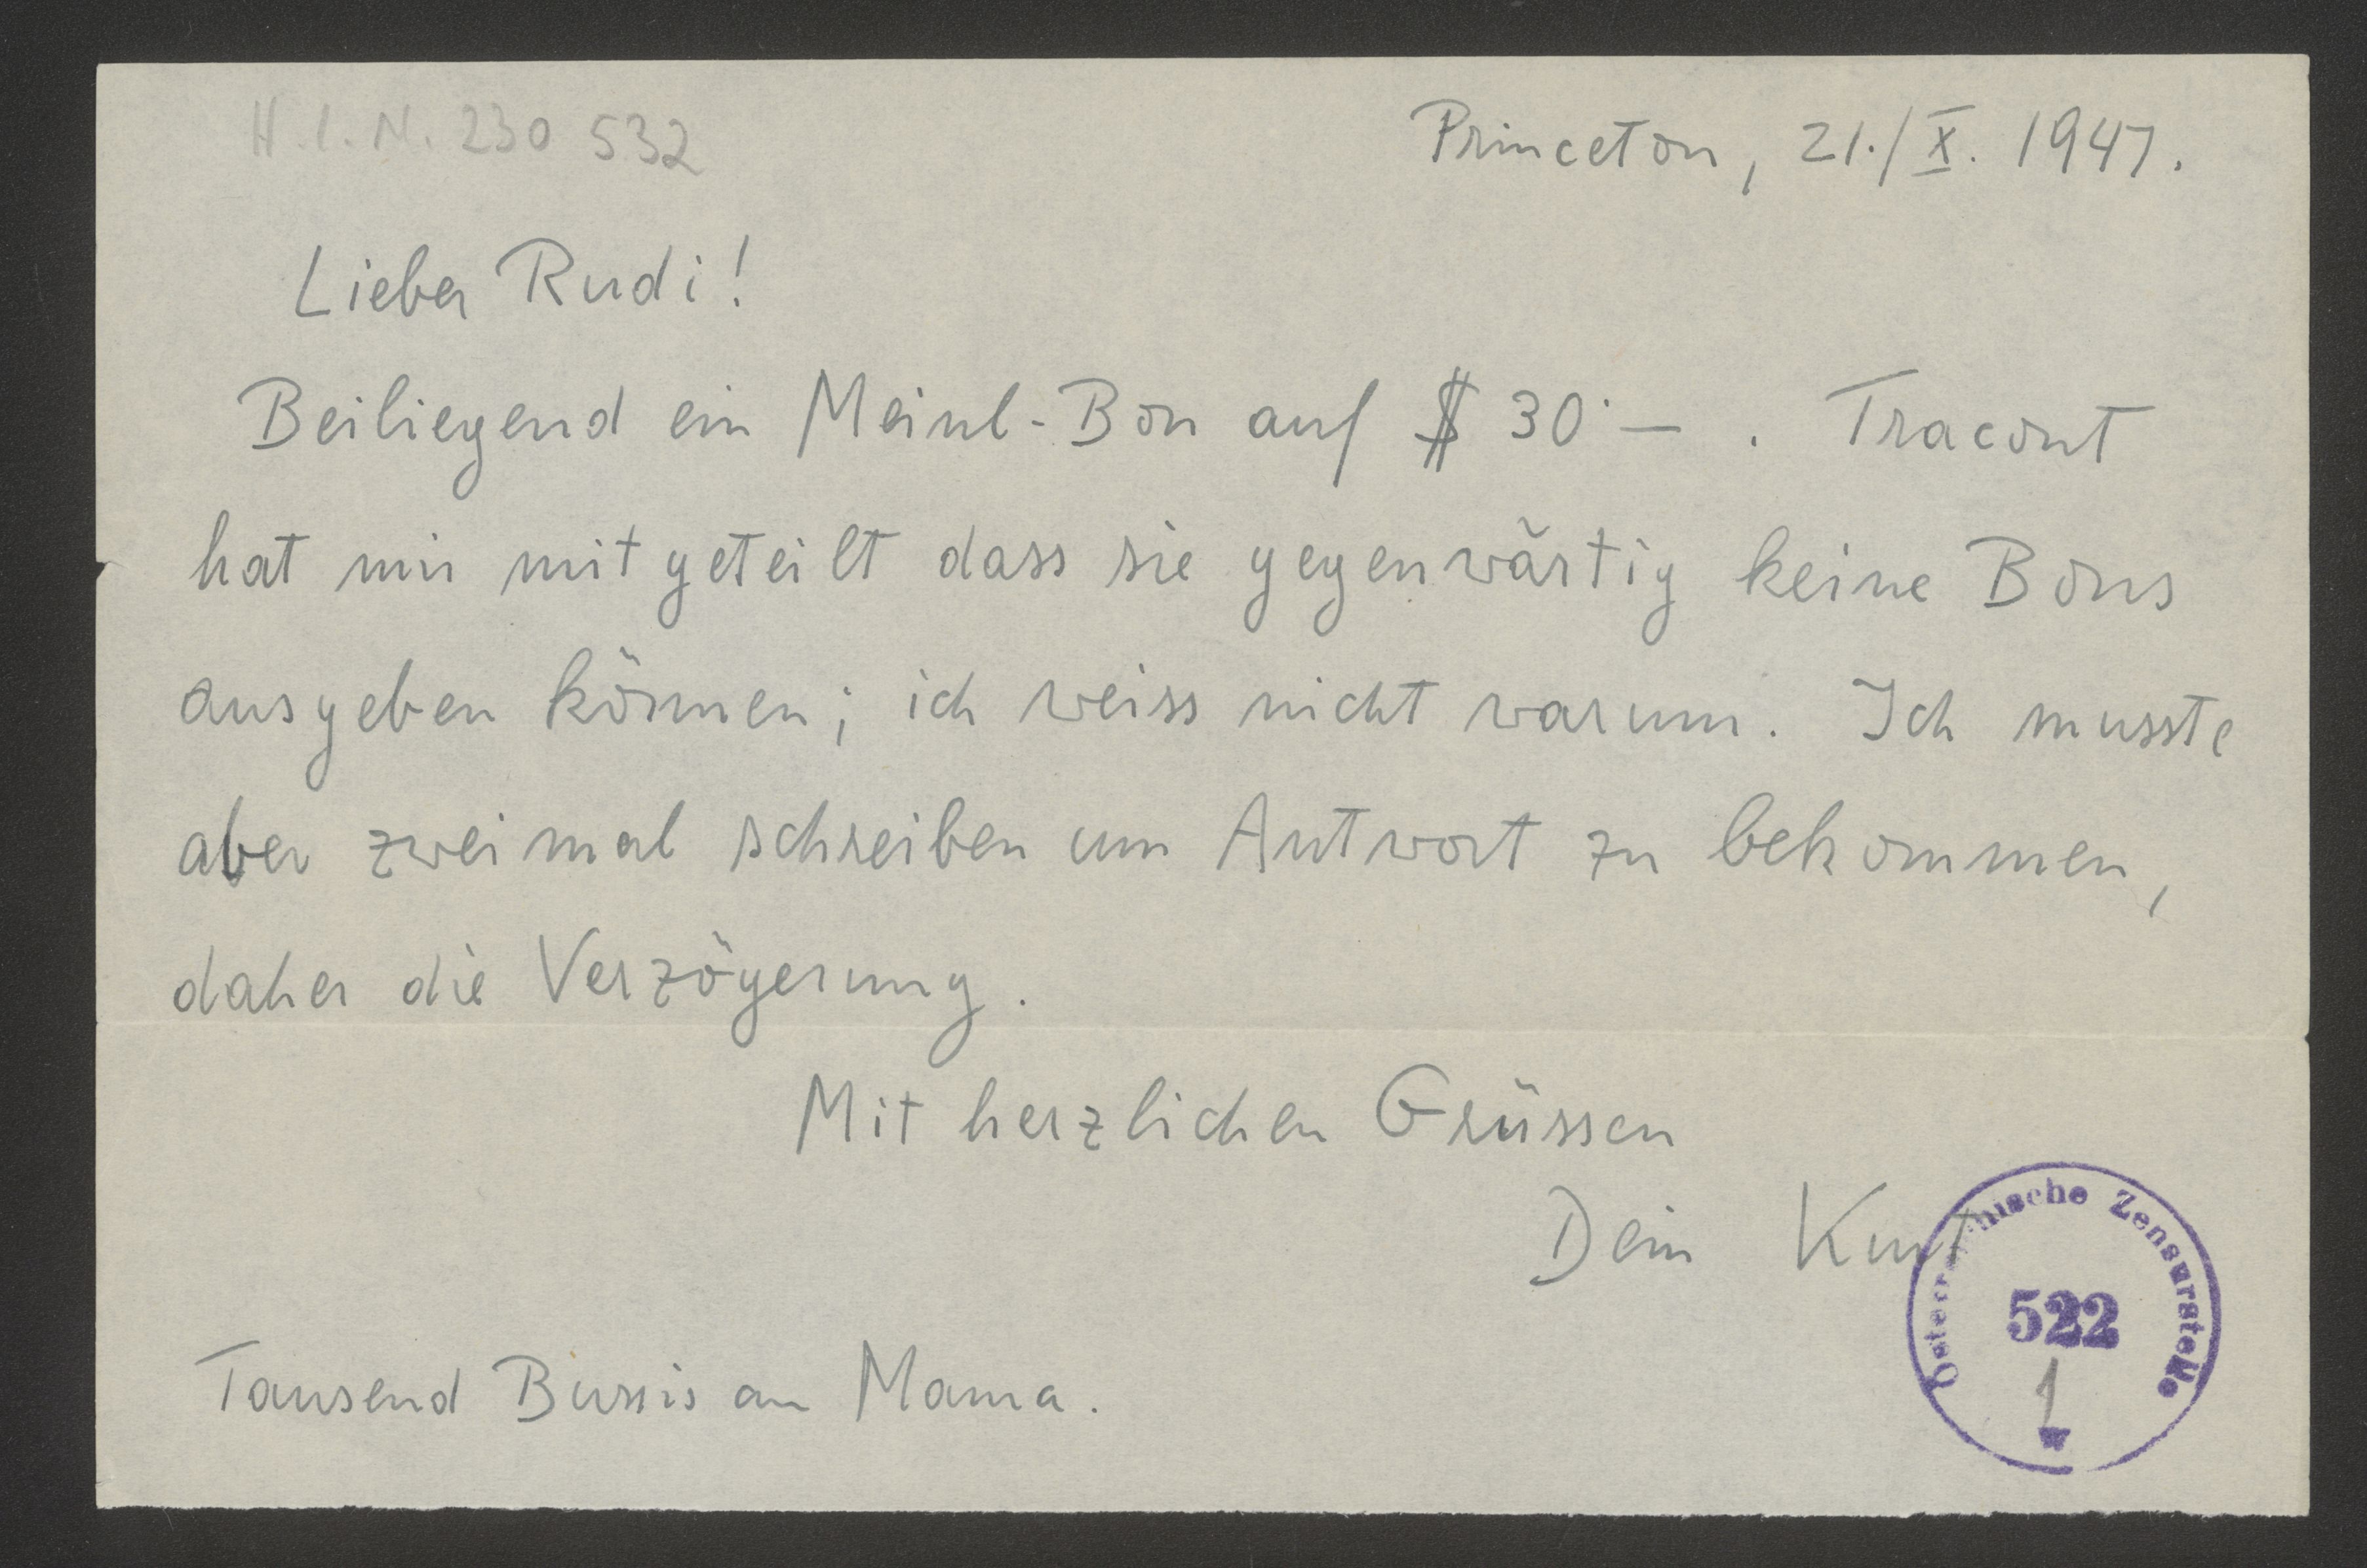 H.I.N. 230 532
Princeton, 21./X. 1947.
Lieber Rudi!
Beiliegend ein Meinl-Bon auf $ 30·— . Tracont
hat mir mitgeteilt dass sie gegenwärtig keine Bons
ausgeben können; ich weiss nicht warum. Ich musste
aber zweimal schreiben um Antwort zu bekommen,
daher die Verzögerung.
Mit herzlichen Grüssen
Dein Kurt
Österreichische Zensurstelle
522
1
Tausend Bussis an Mama.